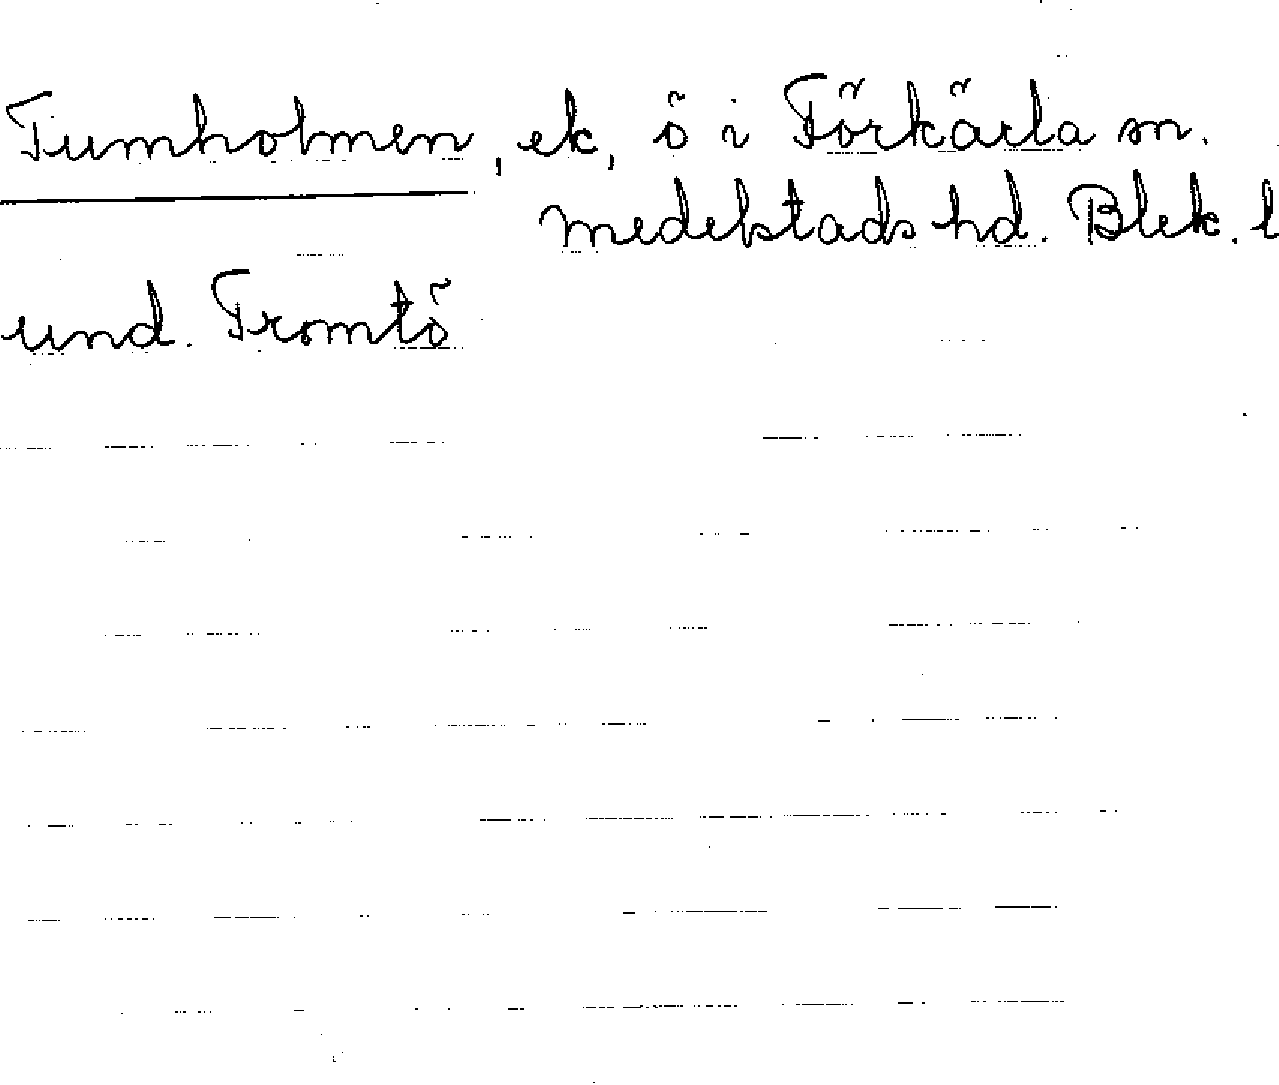 Tumholmen, ek, ö i Förkärla sn.
Medelstads hd. Blek. l
und. Tromtö